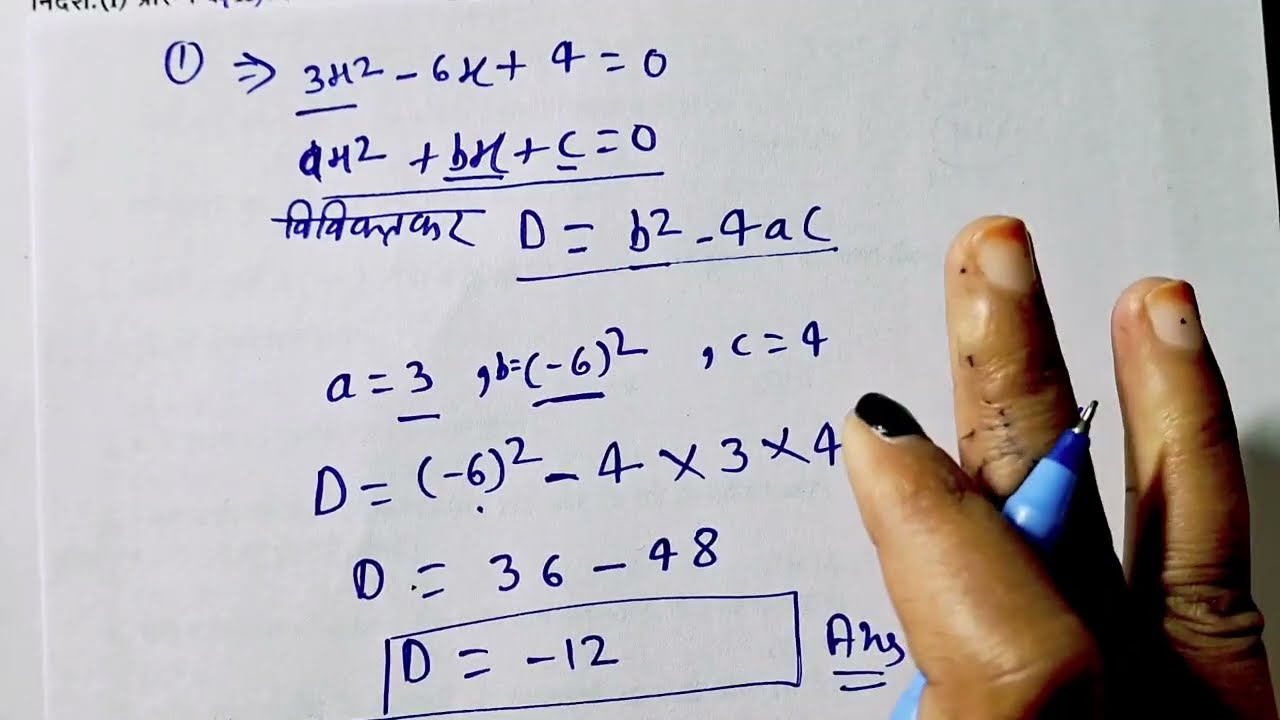 ① ⇒ 3x² - 6x + 4 = 0
ax² + bx + c = 0
विविक्तकर D = b² - 4ac
a = 3 , b = (-6)² , c = 4
D = (-6)² - 4 × 3 × 4
D = 36 - 48
D = -12 Ans